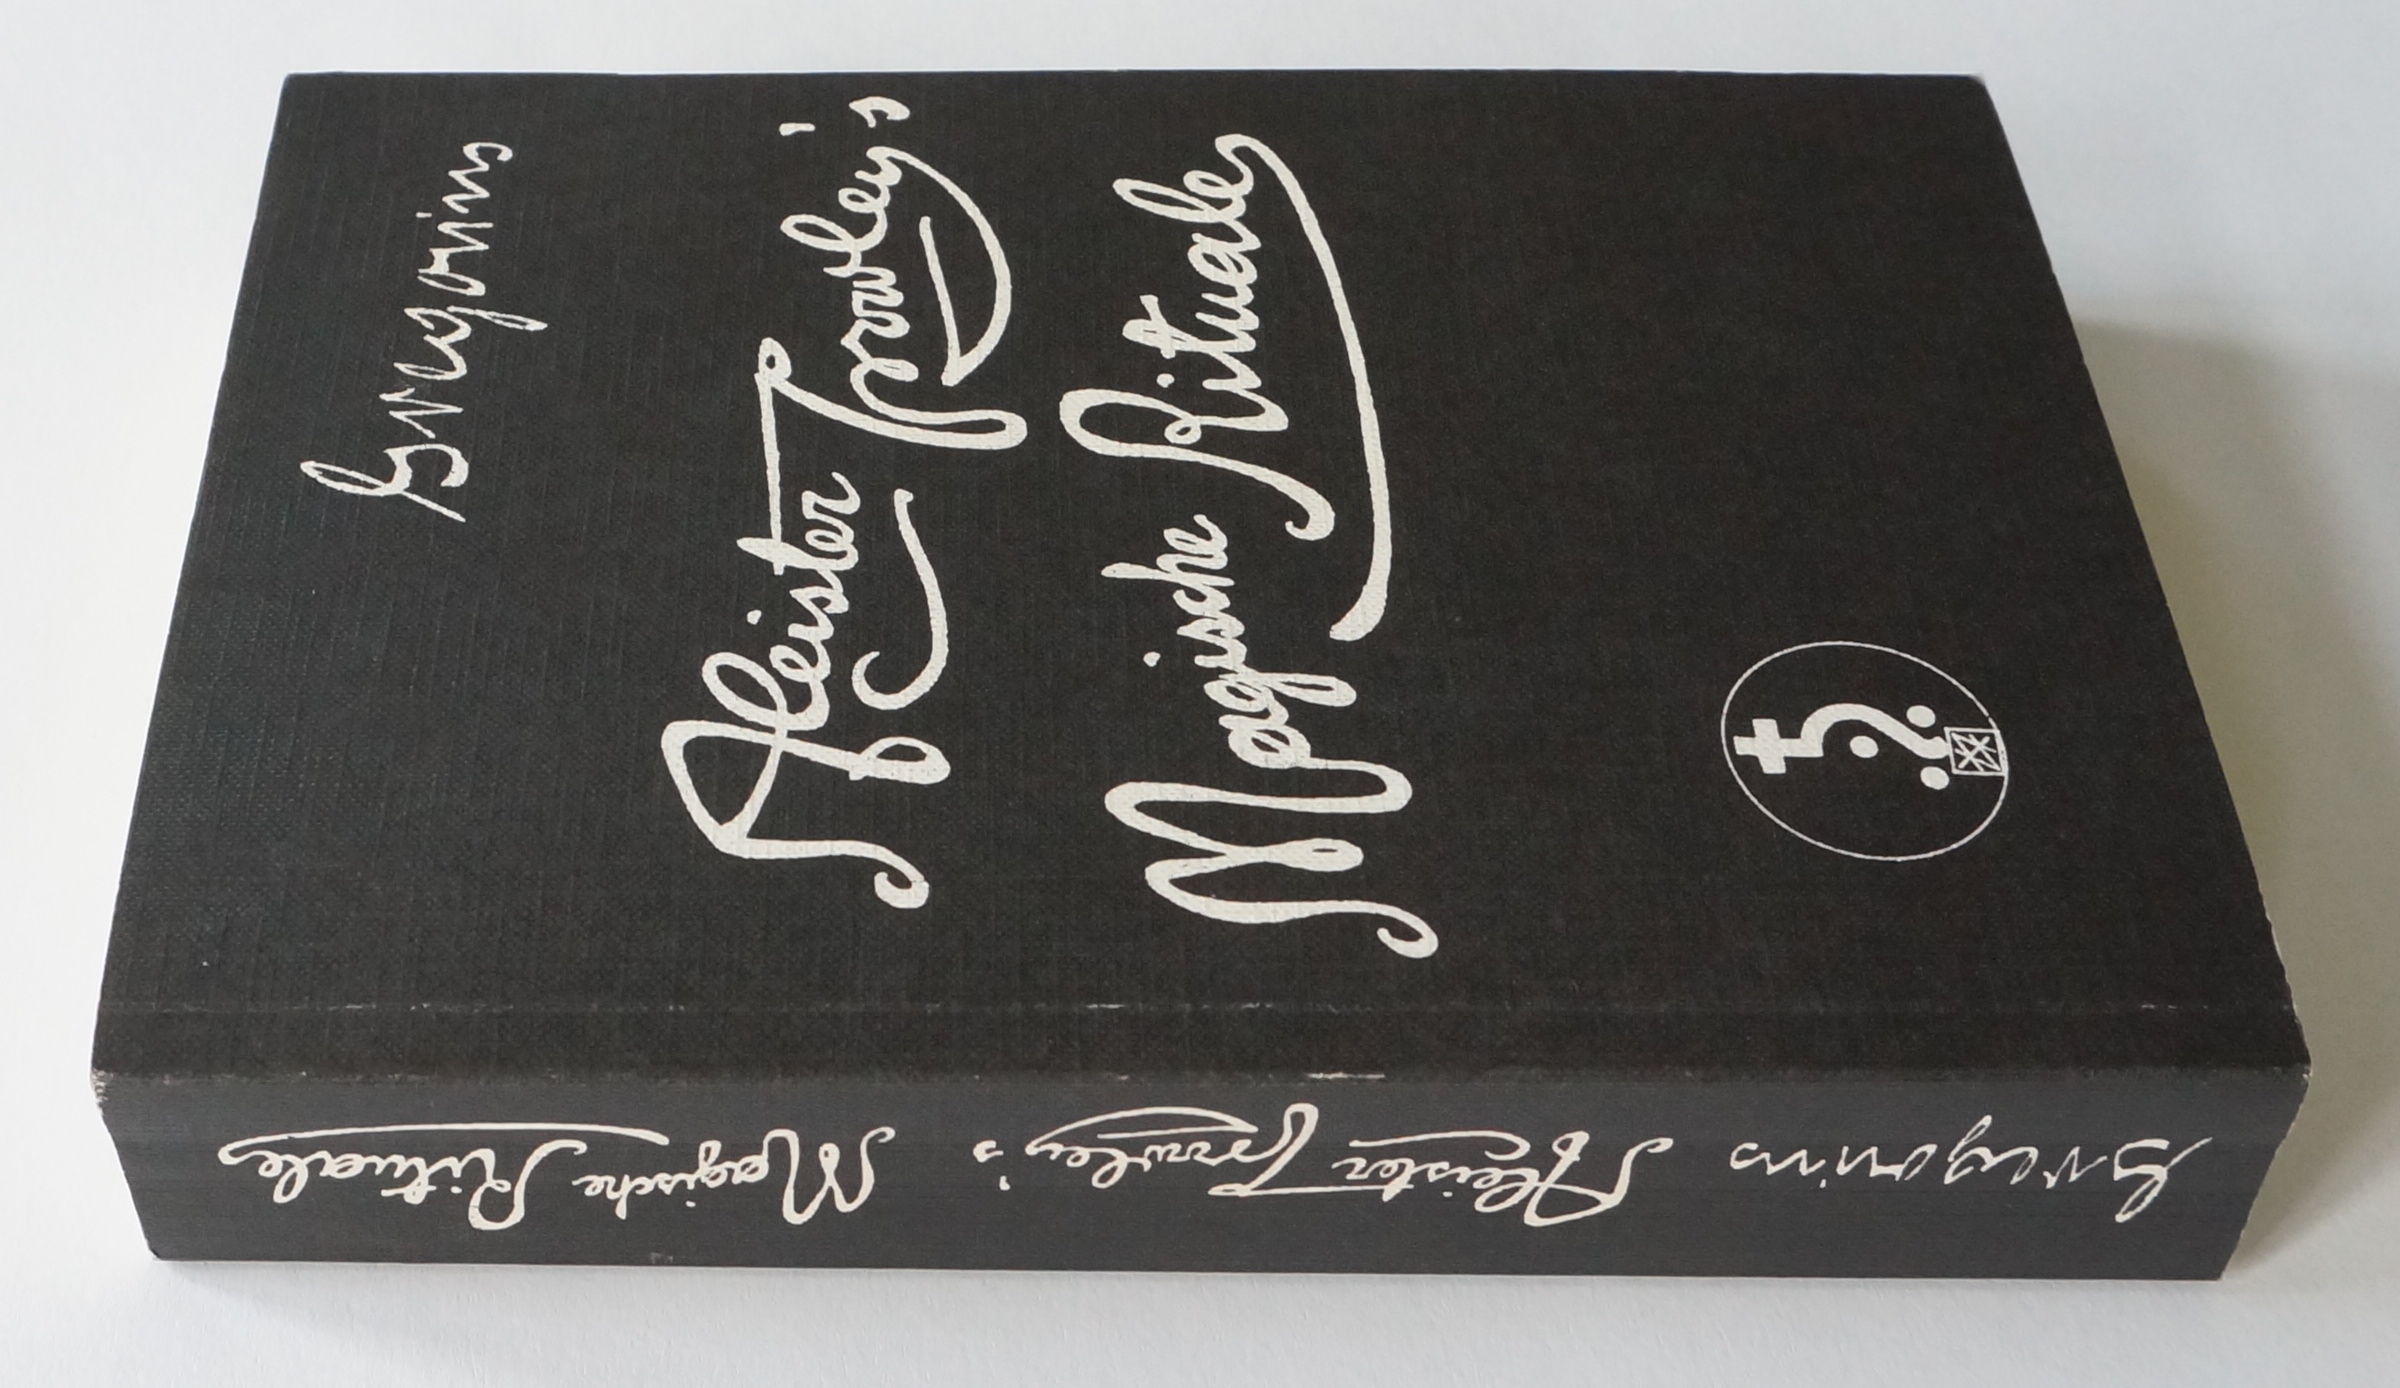 Gregorius
Aleister Crowley's
Magische Rituale
Gregorius Aleister Crowley's Magische Rituale